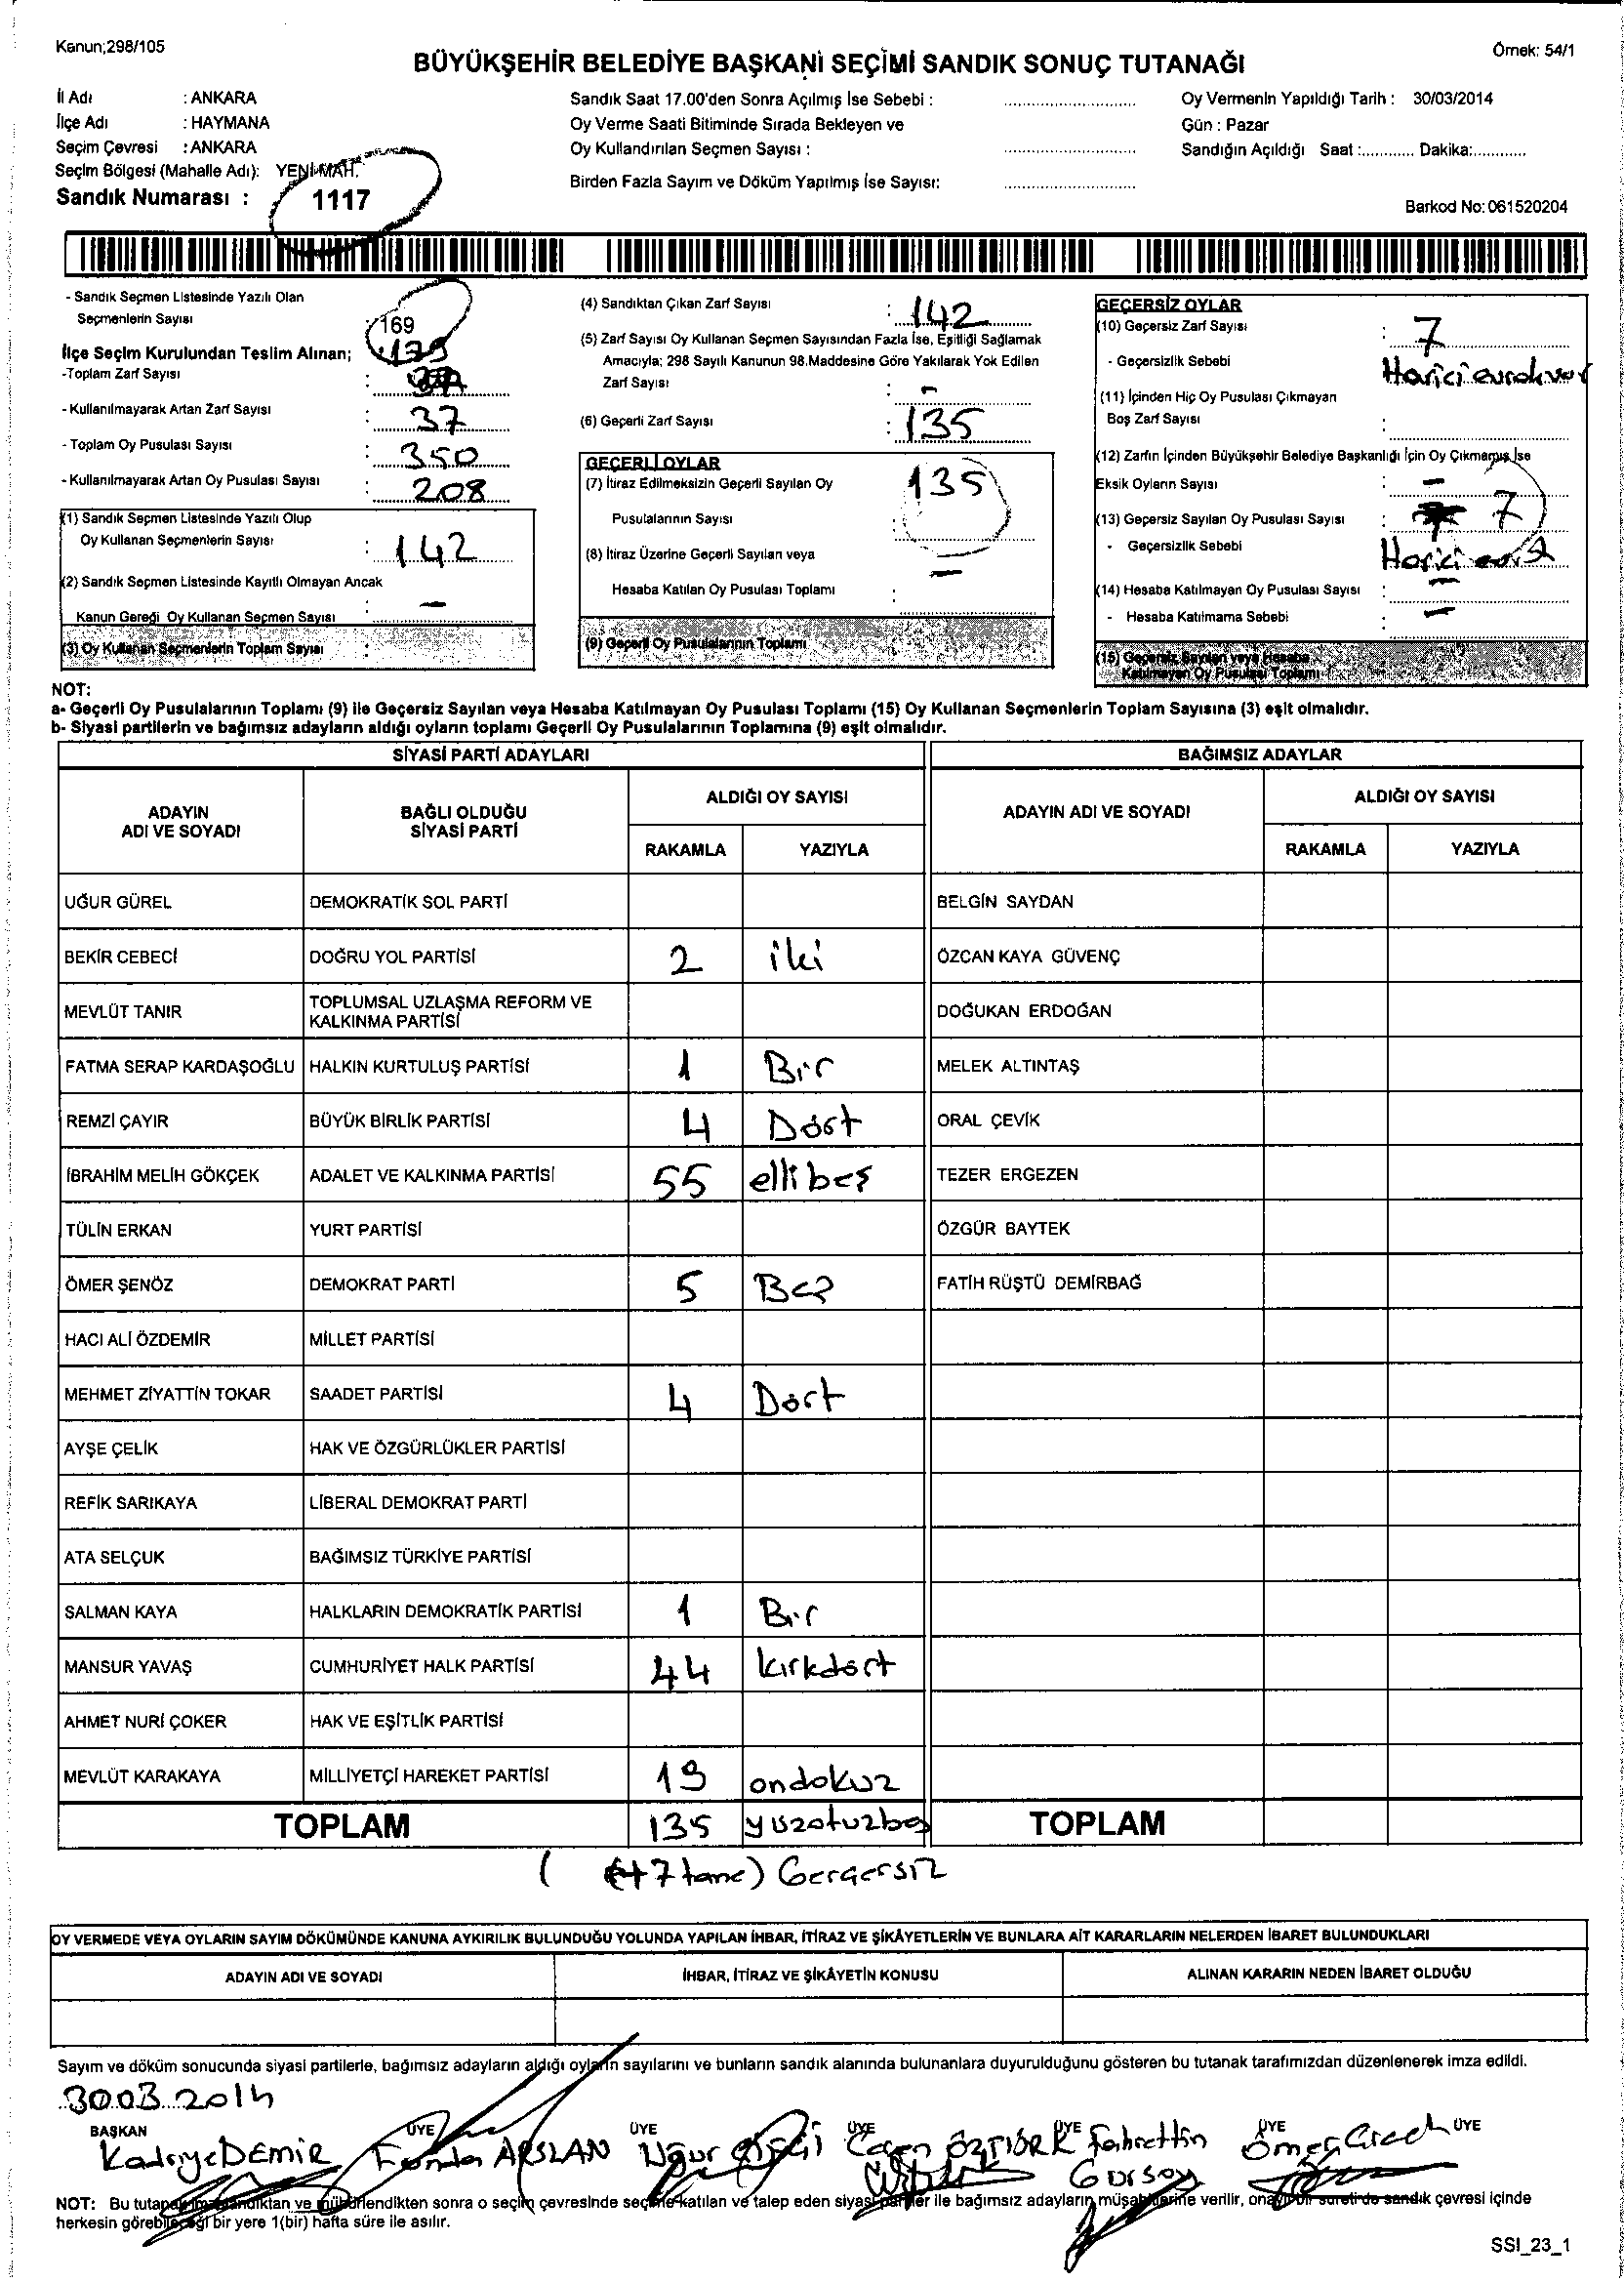 Kanun;298/105
Örnek: 54/1
BÜYÜKŞEHİR BELEDİYE BAŞKANI SEÇİMİ SANDIK SONUÇ TUTANAĞI
İl Adı : ANKARA
İlçe Adı : HAYMANA
Seçim Çevresi : ANKARA
Seçim Bölgesi (Mahalle Adı): YENİ MAH.
Sandık Numarası : 1117
Sandık Saat 17.00'den Sonra Açılmış İse Sebebi :
Oy Verme Saati Bitiminde Sırada Bekleyen ve
Oy Kullandırılan Seçmen Sayısı :
Birden Fazla Sayım ve Döküm Yapılmış İse Sayısı:
Oy Vermenin Yapıldığı Tarih : 30/03/2014
Gün : Pazar
Sandığın Açıldığı Saat :........... Dakika:...........
Barkod No: 061520204
- Sandık Seçmen Listesinde Yazılı Olan
Seçmenlerin Sayısı : 169
İlçe Seçim Kurulundan Teslim Alınan;
-Toplam Zarf Sayısı : 179
- Kullanılmayarak Artan Zarf Sayısı : 37
- Toplam Oy Pusulası Sayısı : 350
- Kullanılmayarak Artan Oy Pusulası Sayısı : 208
(1) Sandık Seçmen Listesinde Yazılı Olup
Oy Kullanan Seçmenlerin Sayısı : 142
(2) Sandık Seçmen Listesinde Kayıtlı Olmayan Ancak
Kanun Gereği Oy Kullanan Seçmen Sayısı : -
(3) Oy Kullanan Seçmenlerin Toplam Sayısı :
(4) Sandıktan Çıkan Zarf Sayısı : 142
(5) Zarf Sayısı Oy Kullanan Seçmen Sayısından Fazla İse, Eşitliği Sağlamak
Amacıyla; 298 Sayılı Kanunun 98.Maddesine Göre Yakılarak Yok Edilen
Zarf Sayısı : -
(6) Geçerli Zarf Sayısı : 135
GEÇERLİ OYLAR
(7) İtiraz Edilmeksizin Geçerli Sayılan Oy
Pusulalarının Sayısı : 135
(8) İtiraz Üzerine Geçerli Sayılan veya
Hesaba Katılan Oy Pusulası Toplamı : -
(9) Geçerli Oy Pusulalarının Toplamı
GEÇERSİZ OYLAR
(10) Geçersiz Zarf Sayısı : 7
- Geçersizlik Sebebi Harici evrak var
(11) İçinden Hiç Oy Pusulası Çıkmayan
Boş Zarf Sayısı :
(12) Zarfın İçinden Büyükşehir Belediye Başkanlığı İçin Oy Çıkmamış İse
Eksik Oyların Sayısı : -
(13) Geçersiz Sayılan Oy Pusulası Sayısı : 7
- Geçersizlik Sebebi Harici
(14) Hesaba Katılmayan Oy Pusulası Sayısı : -
- Hesaba Katılmama Sebebi : -
(15) Geçersiz Sayılan veya Hesaba
Katılmayan Oy Pusulası Toplamı :
NOT:
a- Geçerli Oy Pusulalarının Toplamı (9) ile Geçersiz Sayılan veya Hesaba Katılmayan Oy Pusulası Toplamı (15) Oy Kullanan Seçmenlerin Toplam Sayısına (3) eşit olmalıdır.
b- Siyasi partilerin ve bağımsız adayların aldığı oyların toplamı Geçerli Oy Pusulalarının Toplamına (9) eşit olmalıdır.
SİYASİ PARTİ ADAYLARI
BAĞIMSIZ ADAYLAR
ADAYIN ADI VE SOYADI
BAĞLI OLDUĞU SİYASİ PARTİ
ALDIĞI OY SAYISI
RAKAMLA YAZIYLA
ADAYIN ADI VE SOYADI
ALDIĞI OY SAYISI
RAKAMLA YAZIYLA
UĞUR GÜREL DEMOKRATİK SOL PARTİ BELGİN SAYDAN
BEKİR CEBECİ DOĞRU YOL PARTİSİ 2 iki ÖZCAN KAYA GÜVENÇ
MEVLÜT TANIR TOPLUMSAL UZLAŞMA REFORM VE KALKINMA PARTİSİ DOĞUKAN ERDOĞAN
FATMA SERAP KARDAŞOĞLU HALKIN KURTULUŞ PARTİSİ 1 Bir MELEK ALTINTAŞ
REMZİ ÇAYIR BÜYÜK BİRLİK PARTİSİ 4 Dört ORAL ÇEVİK
İBRAHİM MELİH GÖKÇEK ADALET VE KALKINMA PARTİSİ 55 ellibeş TEZER ERGEZEN
TÜLİN ERKAN YURT PARTİSİ ÖZGÜR BAYTEK
ÖMER ŞENÖZ DEMOKRAT PARTİ 5 Beş FATİH RÜŞTÜ DEMİRBAĞ
HACI ALİ ÖZDEMİR MİLLET PARTİSİ
MEHMET ZİYATTİN TOKAR SAADET PARTİSİ 4 Dört
AYŞE ÇELİK HAK VE ÖZGÜRLÜKLER PARTİSİ
REFİK SARIKAYA LİBERAL DEMOKRAT PARTİ
ATA SELÇUK BAĞIMSIZ TÜRKİYE PARTİSİ
SALMAN KAYA HALKLARIN DEMOKRATİK PARTİSİ 1 Bir
MANSUR YAVAŞ CUMHURİYET HALK PARTİSİ 44 kırkdört
AHMET NURİ ÇOKER HAK VE EŞİTLİK PARTİSİ
MEVLÜT KARAKAYA MİLLİYETÇİ HAREKET PARTİSİ 19 ondokuz
TOPLAM 135 yüzotuzbeş TOPLAM
( +7 tane) Gerçersiz
OY VERMEDE VEYA OYLARIN SAYIM DÖKÜMÜNDE KANUNA AYKIRILIK BULUNDUĞU YOLUNDA YAPILAN İHBAR, İTİRAZ VE ŞİKÂYETLERİN VE BUNLARA AİT KARARLARIN NELERDEN İBARET BULUNDUKLARI
ADAYIN ADI VE SOYADI İHBAR, İTİRAZ VE ŞİKÂYETİN KONUSU ALINAN KARARIN NEDEN İBARET OLDUĞU
Sayım ve döküm sonucunda siyasi partilerle, bağımsız adayların aldığı oyların sayılarını ve bunların sandık alanında bulunanlara duyurulduğunu gösteren bu tutanak tarafımızdan düzenlenerek imza edildi.
30.03.2014
BAŞKAN ÜYE ÜYE ÜYE ÜYE ÜYE ÜYE
Kadriye DEMİR Funda ARSLAN Uğur ÖZTÜRK Fahrettin Gürsoy Ömer
NOT: Bu tutanak imzalandıktan ve mühürlendikten sonra o seçim çevresinde seçime katılan ve talep eden siyasi partiler ile bağımsız adayların müşahitlerine verilir, onaylı bir sureti de sandık çevresi içinde
herkesin görebileceği bir yere 1(bir) hafta süre ile asılır.
SSI_23_1